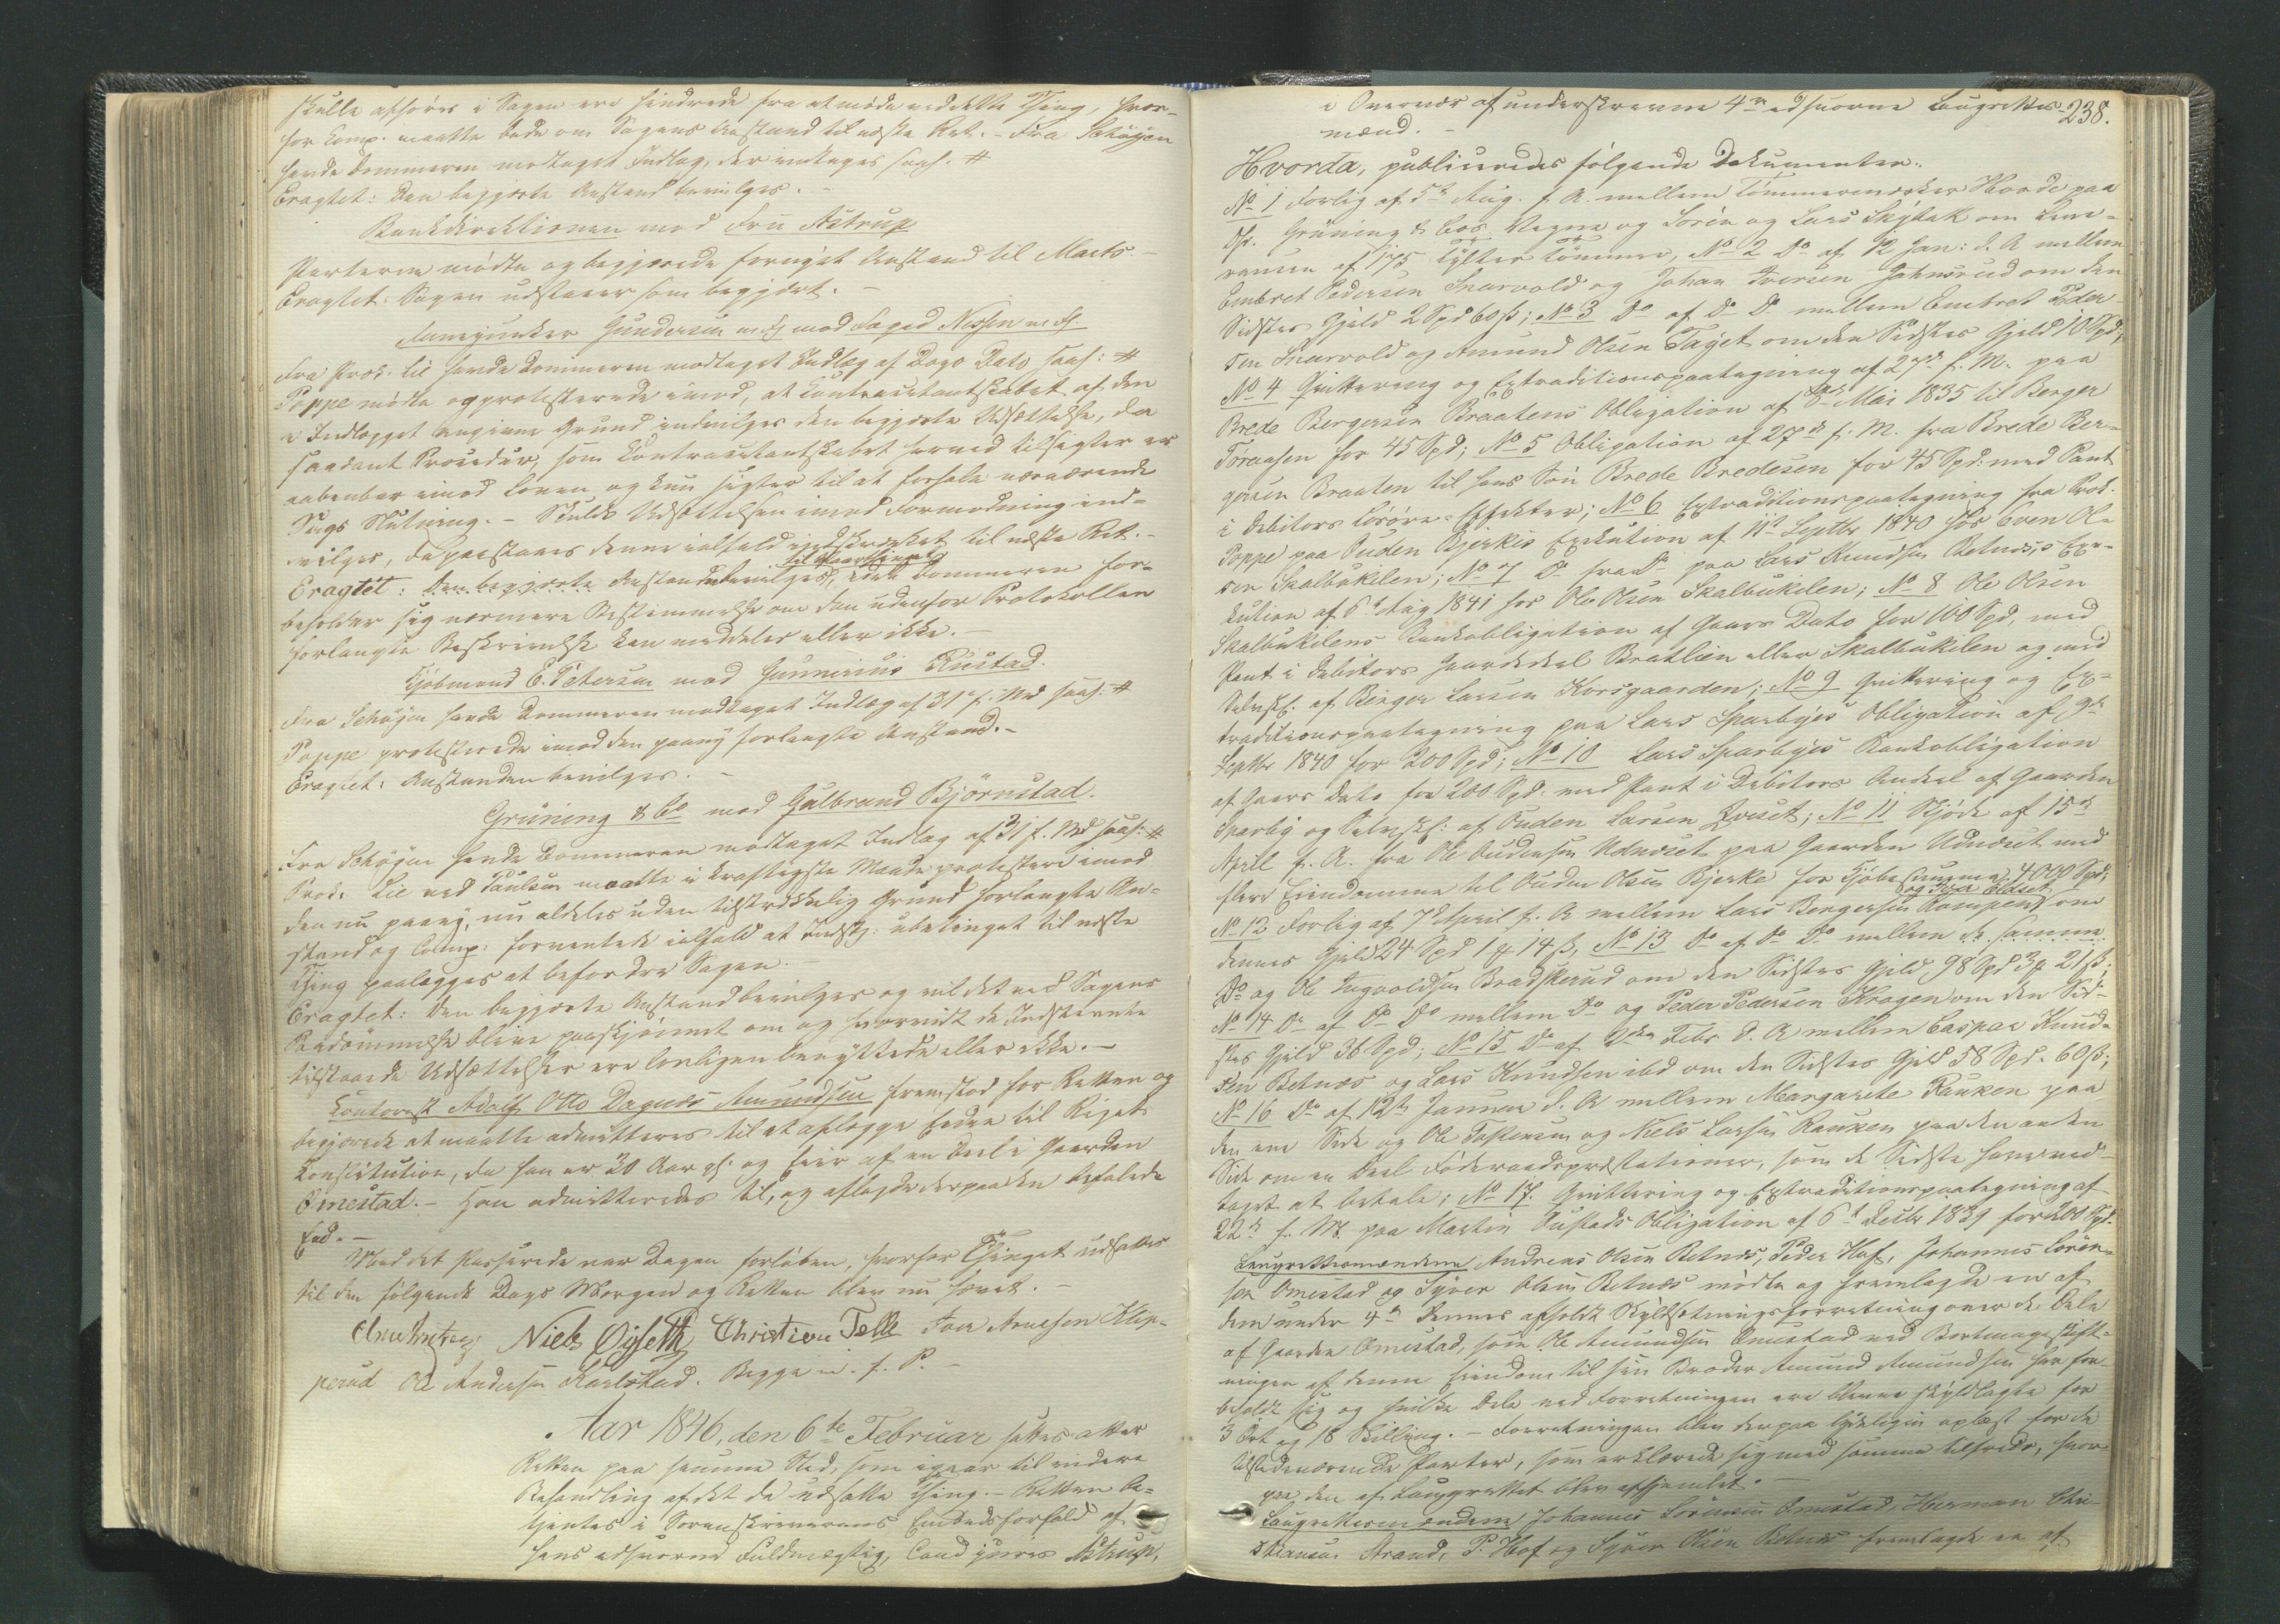 skulle afhøres i Sagen ere hindrede fra at møde ved dette Thing, hvor-
for Comp. maatte bede om Sagens Anstand til næste Ret. - Fra Schöyen
havde Dommeren modtaget Indlæg, der indtages saal. #
Eragtet: Den begjærte Anstand bevilges. -
Bankdirektionen mod Fru Astrup
Parterne mødte og begjærede fornyet Anstand til Marts. -
Eragtet: Sagen udstaaer som begjært. -
Gundersen m fl mod Foged Nissen m fl.
Fra Prok. Lie havde Dommeren modtaget Indlæg af Dags Dato saal: #
Poppe mødte og protesterede imod, at Contracitantskabet af den
i Indlægget angivne Grund indvilges den begjærte Udsættelse, da
saadant Procedur, som Contracitantskabet herved tilsigter er
aabenbar imod Loven og kun sigter til at forhale nærværende
Sags Slutning. - Skulde Udsættelsen imod Formodning ind-
vilges, da paastaaes denne ialfald indskrænket til næste Ret. -
Eragtet: Den begjærte Anstand bevilges, idet Dommeren for-
beholder sig nærmere Bestemmelse om den udenfor Protokollen
forlangte Beskrivelse kan meddeles eller ikke. -
Kjøbmand C. Petersen mod Gunnerius Rustad.
Fra Schöyen havde Dommeren modtaget Indlæg af 31 f. Md saal: #
Poppe protesterede imod den paany forlangte Anstand. -
Eragtet: Anstanden bevilges. -
Grüning & Co mod Gulbrand Björnstad.
Fra Schöyen havde Dommeren modtaget Indlæg af 31 f. Md saal: #
Prok. Lie ved Paulsen maatte i kraftigste Maade protestere imod
den nu paany, nu aldeles uden tilstrækkelig Grund forlangte An-
stand og Comp: forventede ialfald at Indst: ubetinget til næste
Thing paalægges at befordre Sagen. -
Eragtet: Den begjærte Anstand bevilges og vil det ved Sagens
Paadømmelse blive paaskjønnet om og hvorvidt de Indstevnte
tilstaaede Udsættelser ere lovligen benyttede eller ikke. -
Kontorist Adolf Otto Dagnæs Amundsen fremstod for Retten og
begjærede at maatte admitteres til at aflægge Eeden til Rigets
Constitution, da han er 20 Aar gl. og Eier af en Deel i Gaarden
Omestad. - Han admitteredes til, og aflagde derpaa den befalede
Eed. -
Med det Passerede var Dagen forløben, hvorfor Thinget udsattes
til den følgende Dags Morgen og Retten blev nu hævet. -
Niels Öiseth Christian Telle Iver Arnesen Klop-
perud Ole Andersen Karlstad. Begge m. f. P. -
Aar 1846, den 6te Februar sattes atter
Retten paa samme Sted, som igaar til videre
Behandling af det da udsatte Thing. - Retten be-
tjentes i Sorenskriverens Embedsforfald af
hans edsvorne Fuldmægtig, Cand juris Astrup,
238.
i Overvær af underskrevne 4re edsvorne Laugrettes-
mænd. -
Hvorda, publiceredes følgende Dokumenter:
No 1 Forlig af 5te Aug. f. A. mellem Tømmermærker Hoode paa
Hr. Grüning & Cos. Vegne og Sören og Lars Skytak om Leve-
rancen af 175 Tylter Tömmer, No 2 Do af 12 Jan: d. A. mellem
Embret Pedersen Snarvold og Johan Iversen Jahnsrud om den
Sidstes Gjeld 2 Spd 60 ß; No 3 Do af Do Do mellem Embret Peder-
sen Snarvold og Amund Olsen Taget om den Sidstes Gjeld 10 Spd;
No 4 Qvittering og Extraditionspaategning af 27de f. M. paa
Brede Bergersen Braatens Obligation af 8de Mai 1835 til Berger
Toraasen for 45 Spd; No 5 Obligation af 27de f. M. fra Brede Ber-
gersen Braaten til hans Sön Brede Bredesen for 45 Spd: med Pant
i Debitors Lösöre-Effekter; No 6 Extraditionspaategning fra Prok.
Poppe paa Ouden Bjerkes Exekution af 11te Septbr 1840 hos Even Ol-
sen Skalbukilen; No 7 Do fra Do paa Lars Knudsen Betnes's Exe-
kution af 6te Aug 1841 hos Ole Olsen Skalbukilen; No 8 Ole Olsen
Skalbukilens Bankobligation af Gaars Dato for 100 Spd, med
Pant i Debitors Gaardedeel Bratlien eller Skalbukilen og med
af Birger Larsen Korsgaarden; No 9 Qvittering og Ex-
traditionspaategning paa Lars Sparbyes Obligation af 9de
Septbr 1840 for 200 Spd; No 10 Lars Sparbyes Bankobligation
af Gaars Dato for 200 Spd. med Pant i Debitors Andeel af Gaarden
Sparby og af Ouden Larsen; No 11 Skjöde af 15de
April f. A. fra Ole Oudensen Udnæset paa Gaarden Udnæset med
flere Eiendomme til Ouden Olsen Bjerke for Kjøbesumma 4000 Spd;
No 12 Forlig af 7 April f. A mellem Lars Bergersen Rampen om
dennes Gjeld 24 Spd 1 # 14 ß, No 13 Do af Do Do mellem de samme
Do og Ole Ingvoldsen Bradskerud om den Sidstes Gjeld 98 Spd 3 # 21 ß;
No 14 Do af Do Do mellem Do og Peder Pedersen Kragen om den Sid-
stes Gjeld 36 Spd; No 15 Do af 2den Febr d. A mellem Caspar Knud-
sen Betnæs og Lars Knudsen ibd om den Sidstes Gjeld 58 Spd. 60 ß;
No 16 Do af 12te Januar d. A mellem Margarete Rauken paa
den ene Side og Ole Torkensen og Niels Larsen Rauken paa den anden
Side om en Deel Föderaadspræstationer, som de Sidste have ved-
taget at betale; No 17. Qvittering og Extraditionspaategning af
22de f. M. paa Martin Austads Obligation af 6te Decbr 1839 for 200 Spd.
Laugrettesmændene Andreas Olsen Betnæs, Peder Hof, Johannes Lören-
sen Omestad og Syver Olsen Betnæs mødte og fremlagde en af
dem under 4de dennes afholdt Skyldsætningsforretning over de Dele
af Gaarden Omestad, som Ole Amundsen Omestad ved Bortmageskift-
ningen af denne Eiendom til sin Broder Amund Amundsen har for-
beholdt sig og hvilke Dele ved Forretningen ere blevne skyldlagte for
3 Ort og 18 Skilling. - Forretningen blev derpaa tydeligen oplæst for de
tilstedeværende Parter, som erklærede sig med samme tilfreds, hvor-
paa den af Laugrettet blev afhjemlet. -
Laugrettesmændene Johannes Lörensen Omestad, Herman Chri-
stiansen Strand, P. Hof og Syver Olsen Betnæs fremlagde en af